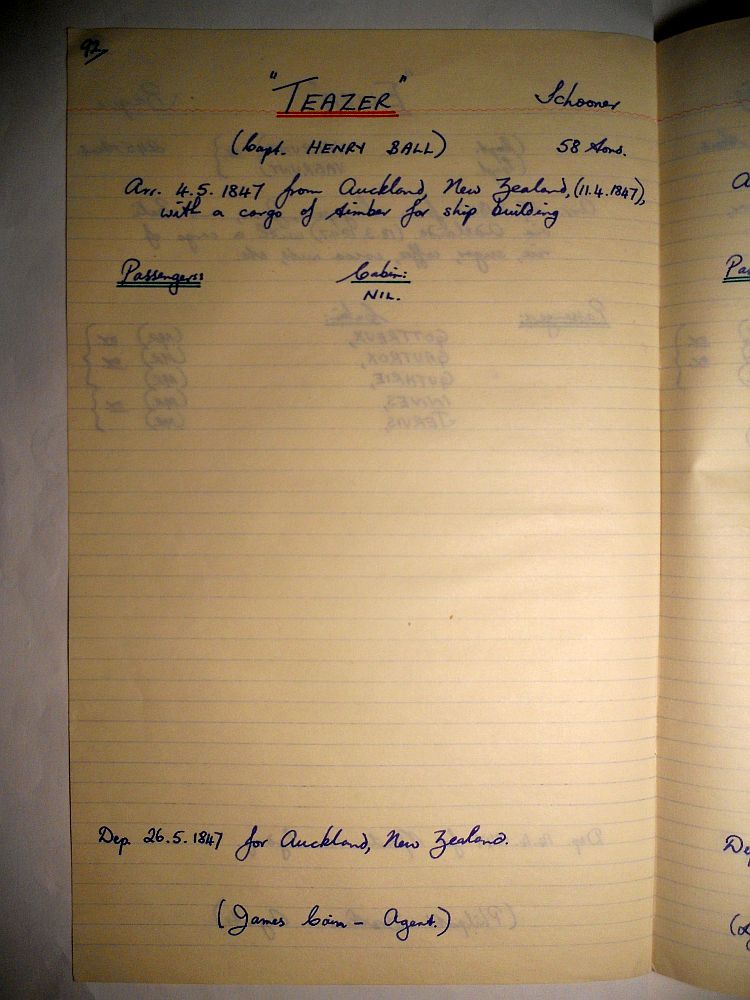 92
"TEAZER" Schooner
(Capt. HENRY BALL) 58 tons.
Arr. 4.5.1847 from Auckland, New Zealand, (11.4.1847),
with a cargo of timber for ship building
Passengers: Cabin:
NIL.
Dep. 26.5.1847 for Auckland, New Zealand.
(James Cain - Agent.)